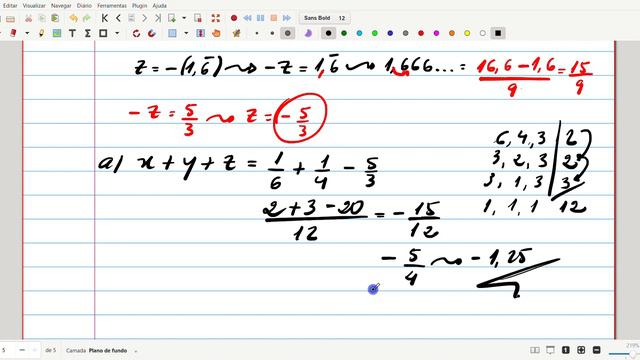 Editar Visualizar Navegar Diário Ferramentas Plugin Ajuda
Sans Bold 12
z = -(1,6̅) ⇝ -z = 1,6̅ ⇝ 1,666... = 16,6 - 1,6 / 9 = 15/9
-z = 5/3 ⇝ z = -5/3
6, 4, 3 | 2
a) x + y + z = 1/6 + 1/4 - 5/3
3, 2, 3 | 2
3, 1, 3 | 3
2 + 3 - 20 / 12 = -15/12
1, 1, 1 12
-5/4 ⇝ -1,25
5 de 5 Camada Plano de fundo
219%